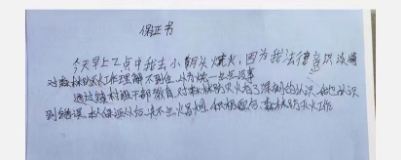 保证书
今天早上7点中我去小朝头烧火,因为我法律意识淡薄
对森林防火工作理解不到位,认为烧一点点没事
通过镇村组干部教育,对森林防火有了深刻的认识,我也认识
到错误,本人保证从今后决不带火易燃,积极配合森林防火工作